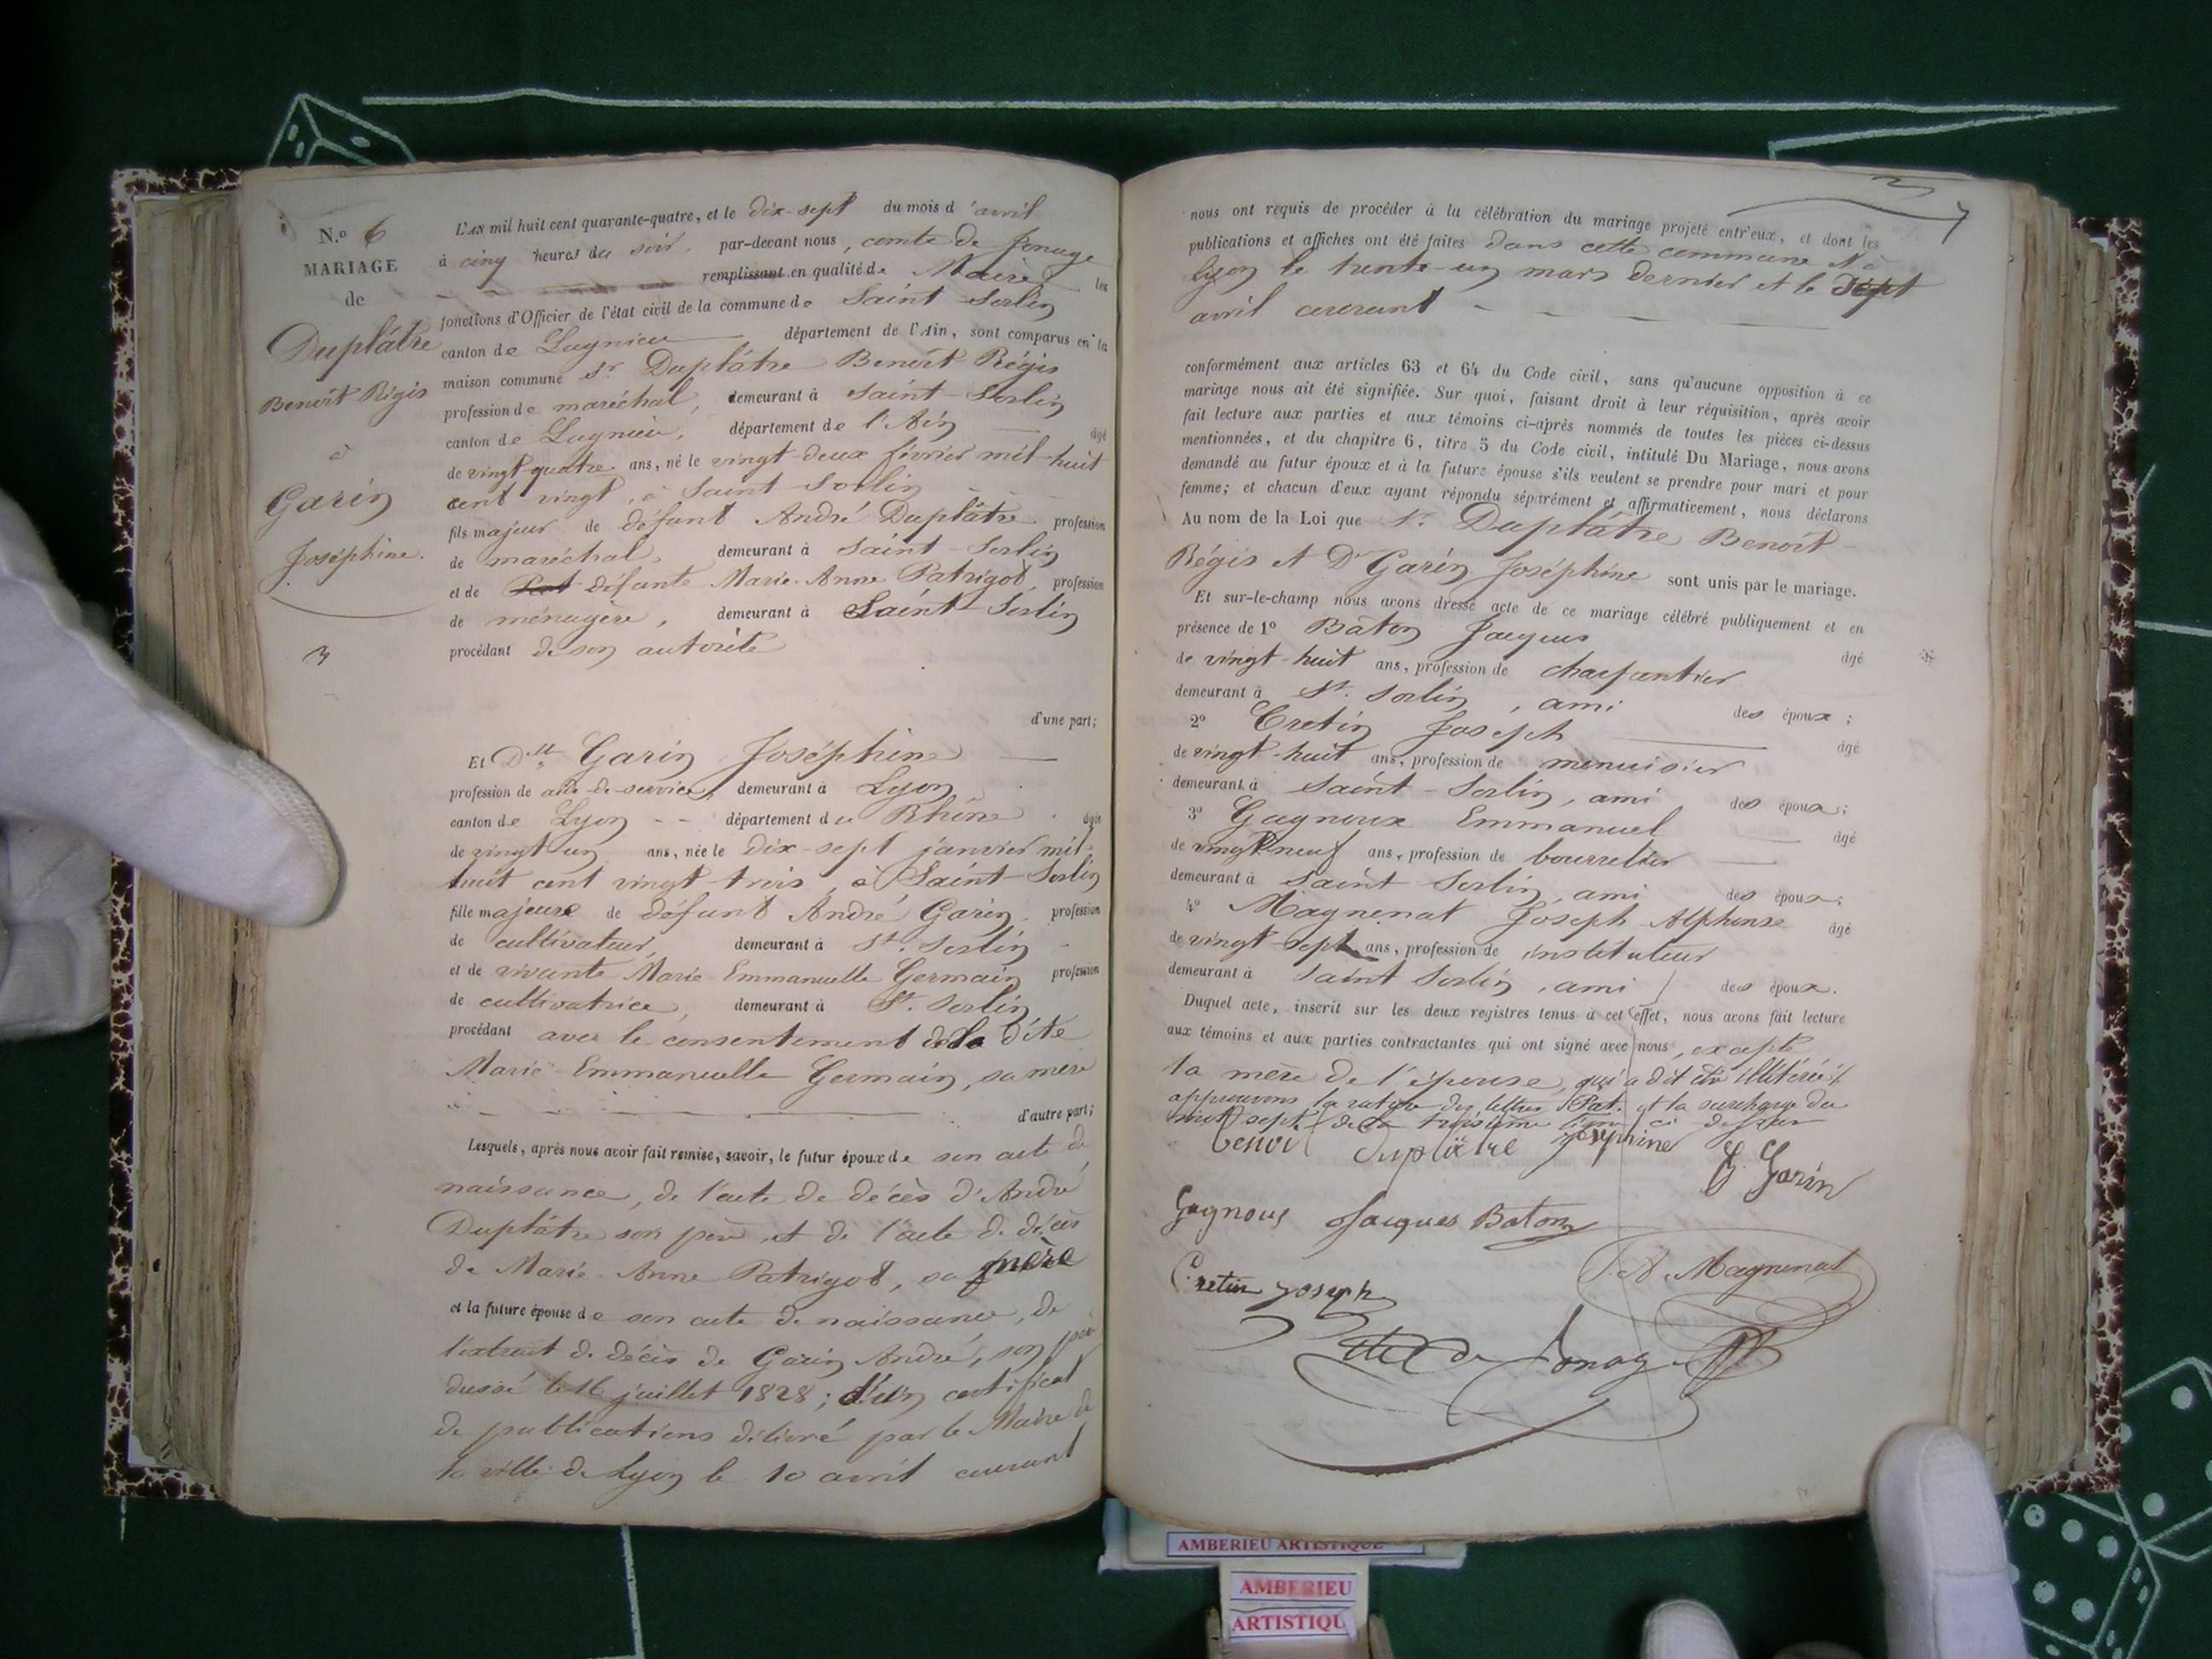 N.º 6
MARIAGE
de
Duplâtre
Benoît Régis
à
Garin
Joséphine.
3
L'AN mil huit cent quarante-quatre, et le dix-sept du mois d'avril
à cinq heures du soir, par-devant nous, comte de Jonage
remplissant en qualité de Maire les
fonctions d'Officier de l'état civil de la commune de Saint-Sorlin
canton de Lagnieu département de l'Ain, sont comparus en la
maison commune sr. Duplâtre Benoît Régis
profession de maréchal, demeurant à Saint-Sorlin
canton de Lagnieu, département de l'Ain âgé
de vingt quatre ans, né le vingt-deux février mil-huit
cent vingt, à Saint-Sorlin
fils majeur de défunt André Duplâtre profession
de maréchal, demeurant à Saint-Sorlin
et de Pat défunte Marie-Anne Patrigot, profession
de ménagère, demeurant à Saint-Sorlin
procédant de son autorité
d'une part;
Et Dlle Garin Joséphine
profession de aide-de-service, demeurant à Lyon
canton de Lyon département du Rhône âgée
de vingt un ans, née le dix-sept janvier mil
huit cent vingt-trois, à Saint-Sorlin
fille majeure de défunt André Garin, profession
de cultivateur, demeurant à St. Sorlin
et de vivante Marie-Emmanuelle Germain profession
de cultivatrice, demeurant à St. Sorlin
procédant avec le consentement de la dite
Marie-Emmanuelle Germain, sa mère
d'autre part;
Lesquels, après nous avoir fait remise, savoir, le futur époux de son acte de
naissance, de l'acte de décès d'André
Duplâtre son père, et de l'acte de décès
de Marie-Anne Patrigot, sa mère
et la future épouse de son acte de naissance, de
l'extrait de décès de Garin André, son père
dressé le 16 juillet 1828; d'un certificat
de publications délivré par le Maire de
la ville de Lyon le 10 avril courant
7
nous ont requis de procéder à la célébration du mariage projeté entr'eux, et dont les
publications et affiches ont été faites dans cette commune et à
Lyon le trente-un mars dernier et le sept
avril courant
conformément aux articles 63 et 64 du Code civil, sans qu'aucune opposition à ce
mariage nous ait été signifiée. Sur quoi, faisant droit à leur réquisition, après avoir
fait lecture aux parties et aux témoins ci-après nommés de toutes les pièces ci-dessus
mentionnées, et du chapitre 6, titre 5 du Code civil, intitulé Du Mariage, nous avons
demandé au futur époux et à la future épouse s'ils veulent se prendre pour mari et pour
femme; et chacun d'eux ayant répondu séparément et affirmativement, nous déclarons
Au nom de la Loi que Sr. Duplâtre Benoît
Régis et Dlle Garin Joséphine sont unis par le mariage.
Et sur-le-champ nous avons dressé acte de ce mariage célébré publiquement et en
présence de 1º Bâton Jacques âgé
de vingt-huit ans, profession de charpentier
demeurant à St. Sorlin, ami des époux;
2º Cretin Joseph âgé
de vingt-huit ans, profession de menuisier
demeurant à Saint-Sorlin, ami des époux;
3º Gagnoux Emmanuel âgé
de vingt neuf ans, profession de bourrelier
demeurant à Saint Sorlin, ami des époux;
4º Magnenat Joseph Alphonse âgé
de vingt-sept ans, profession de instituteur
demeurant à Saint Sorlin, ami des époux.
Duquel acte, inscrit sur les deux registres tenus à cet effet, nous avons fait lecture
aux témoins et aux parties contractantes qui ont signé avec nous, excepté
la mère de l'épouse, qui a dit être illitérée
approuvons la rature des lettres Pat. et la surcharge du
mot sept de la troisième ligne ci dessus
benoit Duplâtre Joséphine
G Garin
Gagnoux Jacques Baton
Cretin Joseph
A. Magnenat
de Jonage
AMBERIEU ARTISTIQUE
AMBERIEU
ARTISTIQU